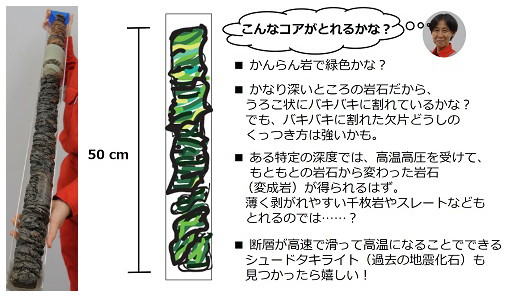 こんなコアがとれるかな？
■ かんらん岩で緑色かな？
■ かなり深いところの岩石だから、
うろこ状にバキバキに割れているかな？
でも、バキバキに割れた欠片どうしの
くっつき方は強いかも。
50 cm
■ ある特定の深度では、高温高圧を受けて、
もともとの岩石から変わった岩石
（変成岩）が得られるはず。
薄く剥がれやすい千枚岩やスレートなども
とれるのでは……？
■ 断層が高速で滑って高温になることでできる
シュードタキライト（過去の地震化石）も
見つかったら嬉しい！